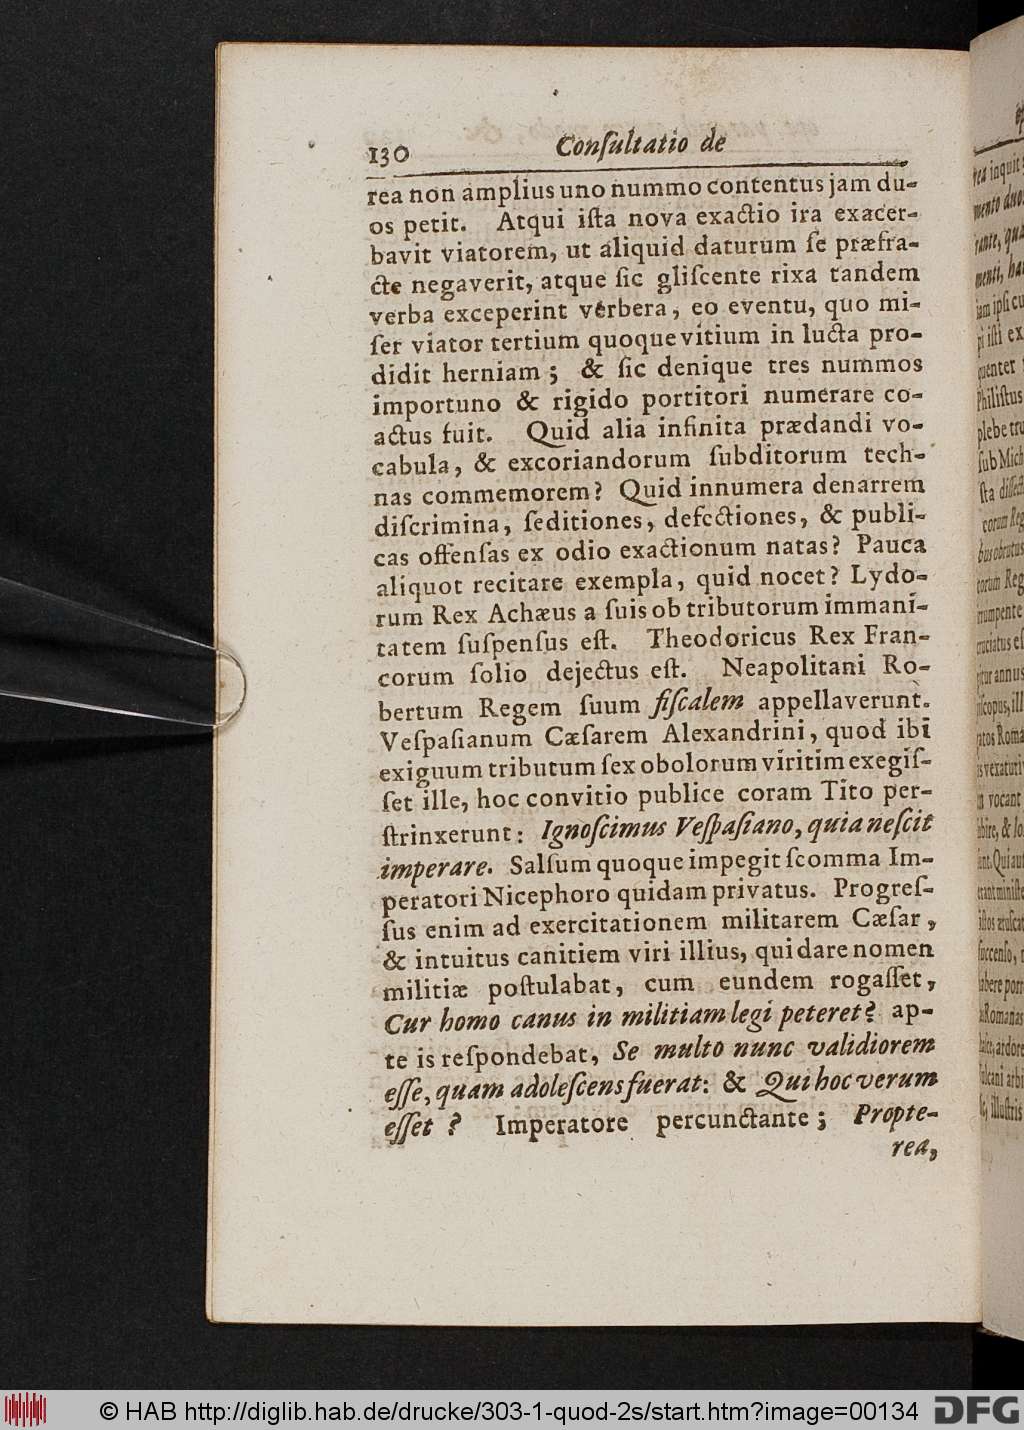 130 Conſultatio de
rea non amplius uno nummo contentus jam du-
os petit. Atqui iſta nova exactio ira exacer-
bavit viatorem, ut aliquid daturum ſe præfra-
cte negaverit, atque ſic gliſcente rixa tandem
verba exceperint verbera, eo eventu, quo mi-
ſer viator tertium quoque vitium in lucta pro-
didit herniam; & ſic denique tres nummos
importuno & rigido portitori numerare co-
actus fuit. Quid alia infinita prædandi vo-
cabula, & excoriandorum ſubditorum tech-
nas commemorem? Quid innumera denarrem
diſcrimina, ſeditiones, defectiones, & publi-
cas offenſas ex odio exactionum natas? Pauca
aliquot recitare exempla, quid nocet? Lydo-
rum Rex Achæus a ſuis ob tributorum immani-
tatem ſuſpenſus eſt. Theodoricus Rex Fran-
corum ſolio dejectus eſt. Neapolitani Ro-
bertum Regem ſuum fiſcalem appellaverunt.
Veſpaſianum Cæſarem Alexandrini, quod ibi
exiguum tributum ſex obolorum viritim exegiſ-
ſet ille, hoc convitio publice coram Tito per-
ſtrinxerunt: Ignoſcimus Veſpaſiano, quia neſcit
imperare. Salſum quoque impegit ſcomma Im-
peratori Nicephoro quidam privatus. Progreſ-
ſus enim ad exercitationem militarem Cæſar,
& intuitus canitiem viri illius, qui dare nomen
militiæ poſtulabat, cum eundem rogaſſet,
Cur homo canus in militiam legi peteret? ap-
te is reſpondebat, Se multo nunc validiorem
eſſe, quam adoleſcens fuerat: & Qui hoc verum
eſſet? Imperatore percunctante; Propte-
rea,
© HAB http://diglib.hab.de/drucke/303-1-quod-2s/start.htm?image=00134
DFG